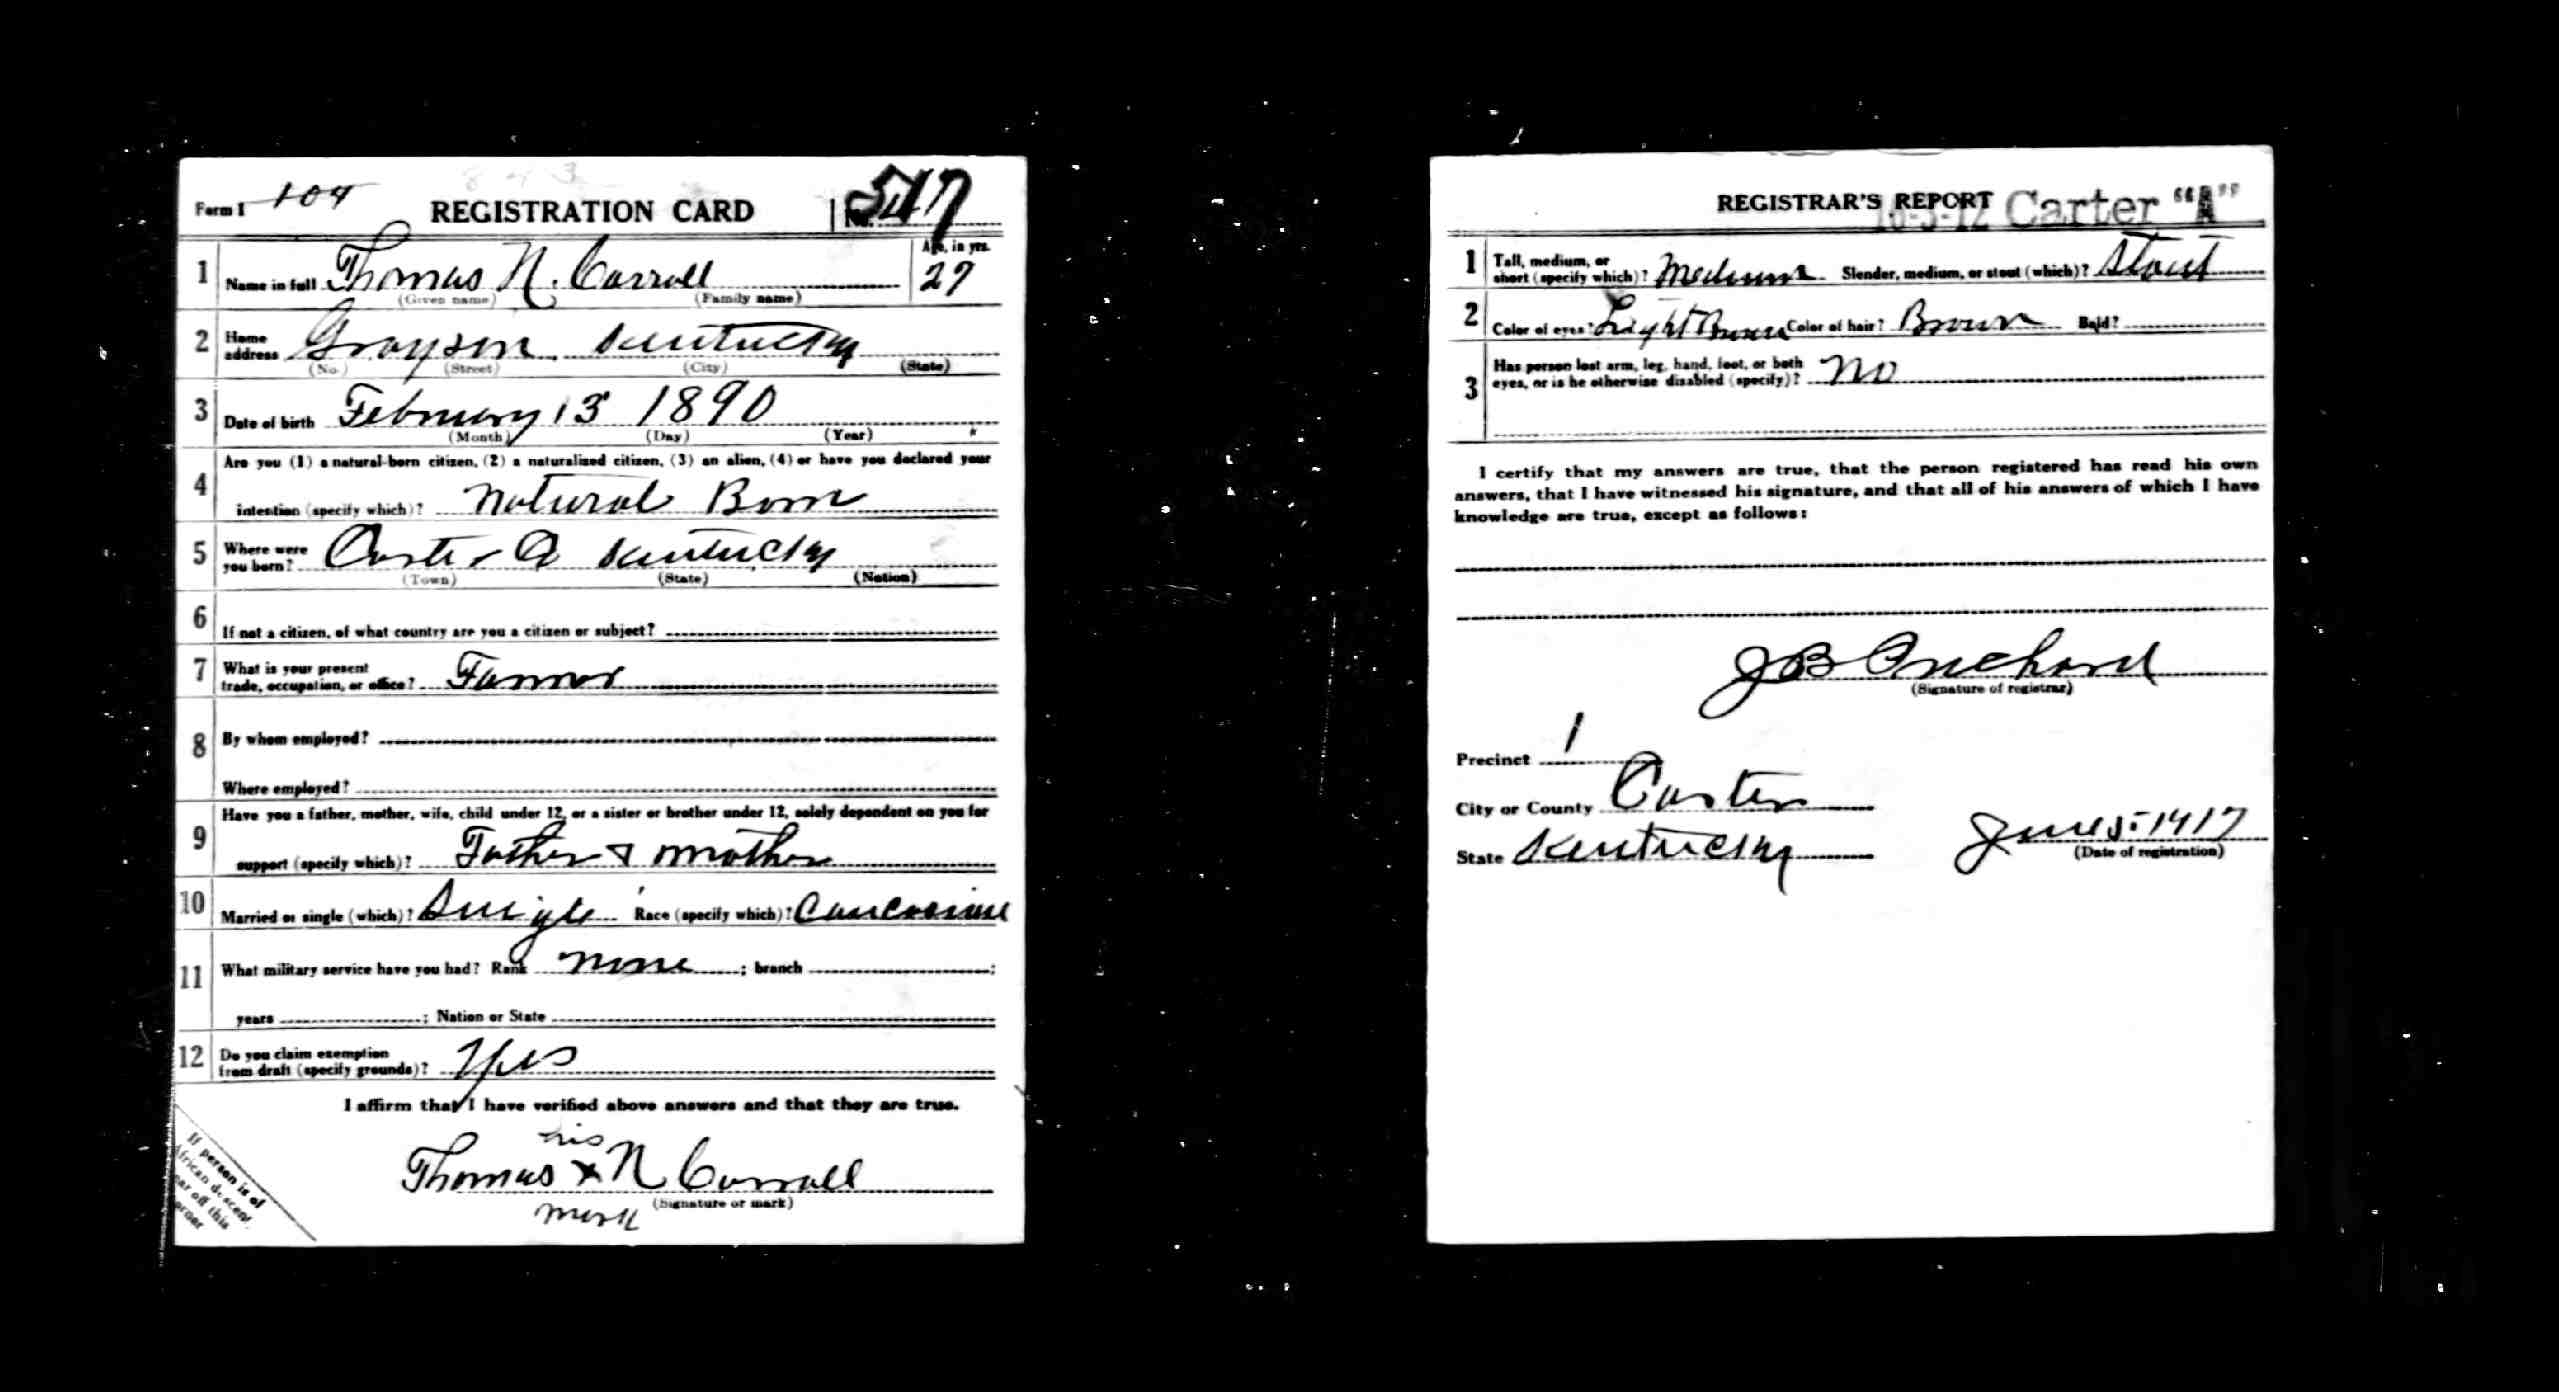 Form 1 104 REGISTRATION CARD No. 517
1 Name in full Thomas N. Carroll Age, in yrs. 27
(Given name) (Family name)
2 Home address Grayson Kentucky
(No.) (Street) (City) (State)
3 Date of birth February 13 1890
(Month) (Day) (Year)
4 Are you (1) a natural-born citizen, (2) a naturalized citizen, (3) an alien, (4) or have you declared your
intention (specify which)? Natural Born
5 Where were you born? Carter Co Kentucky
(Town) (State) (Nation)
6 If not a citizen, of what country are you a citizen or subject?
7 What is your present trade, occupation, or office? Farmer
8 By whom employed?
Where employed?
9 Have you a father, mother, wife, child under 12, or a sister or brother under 12, solely dependent on you for
support (specify which)? Father & Mother
10 Married or single (which)? Single Race (specify which)?
11 What military service have you had? Rank none ; branch ;
years ; Nation or State
12 Do you claim exemption from draft (specify grounds)? Yes
I affirm that I have verified above answers and that they are true.
his
Thomas x N Carroll
(Signature or mark)
mark
If person is of
African descent,
tear off this
corner
REGISTRAR'S REPORT 16-3-12 Carter "A"
1 Tall, medium, or short (specify which)? Medium Slender, medium, or stout (which)? Stout
2 Color of eyes? Light Brown Color of hair? Brown Bald?
3 Has person lost arm, leg, hand, foot, or both
eyes, or is he otherwise disabled (specify)? No
I certify that my answers are true, that the person registered has read his own
answers, that I have witnessed his signature, and that all of his answers of which I have
knowledge are true, except as follows:
J B Prichard
(Signature of registrar)
Precinct 1
City or County Carter
State Kentucky June 5-1917
(Date of registration)